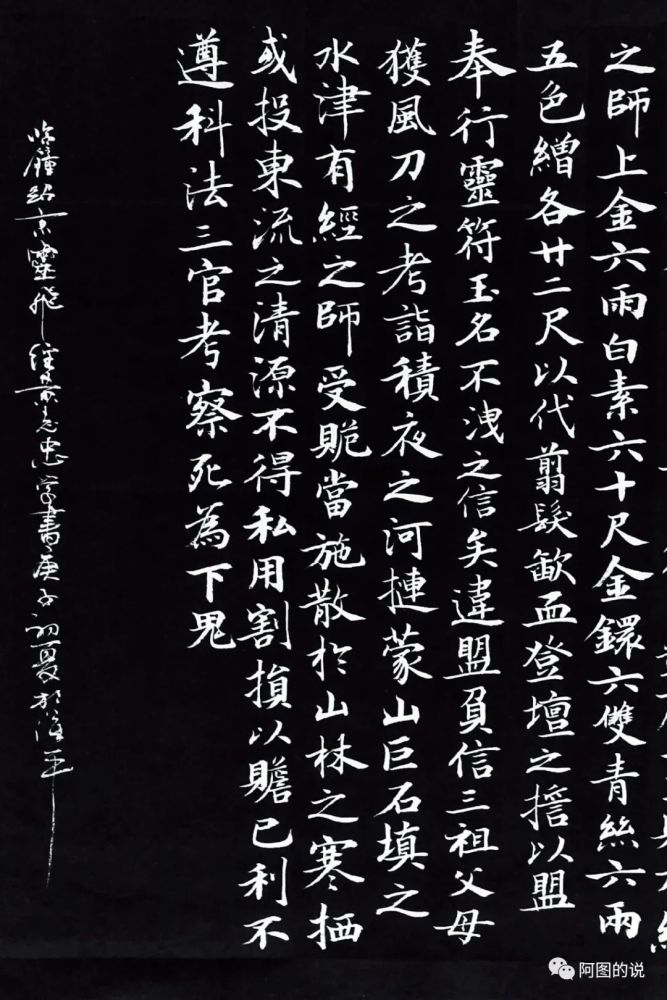 之師上金六兩白素六十尺金鐶六雙青絲六兩
五色繒各廿二尺以代翦髮歃血登壇之誓以盟
奉行靈符玉名不洩之信矣違盟負信三祖父母
獲風刀之考詣積夜之河摙蒙山巨石填之
水津有經之師受貺當施散於山林之寒栖
或投東流之清源不得私用割損以贍已利不
遵科法三官考察死為下鬼
臨鐘紹京靈飛經 忠學書庚子初夏於
阿图的说